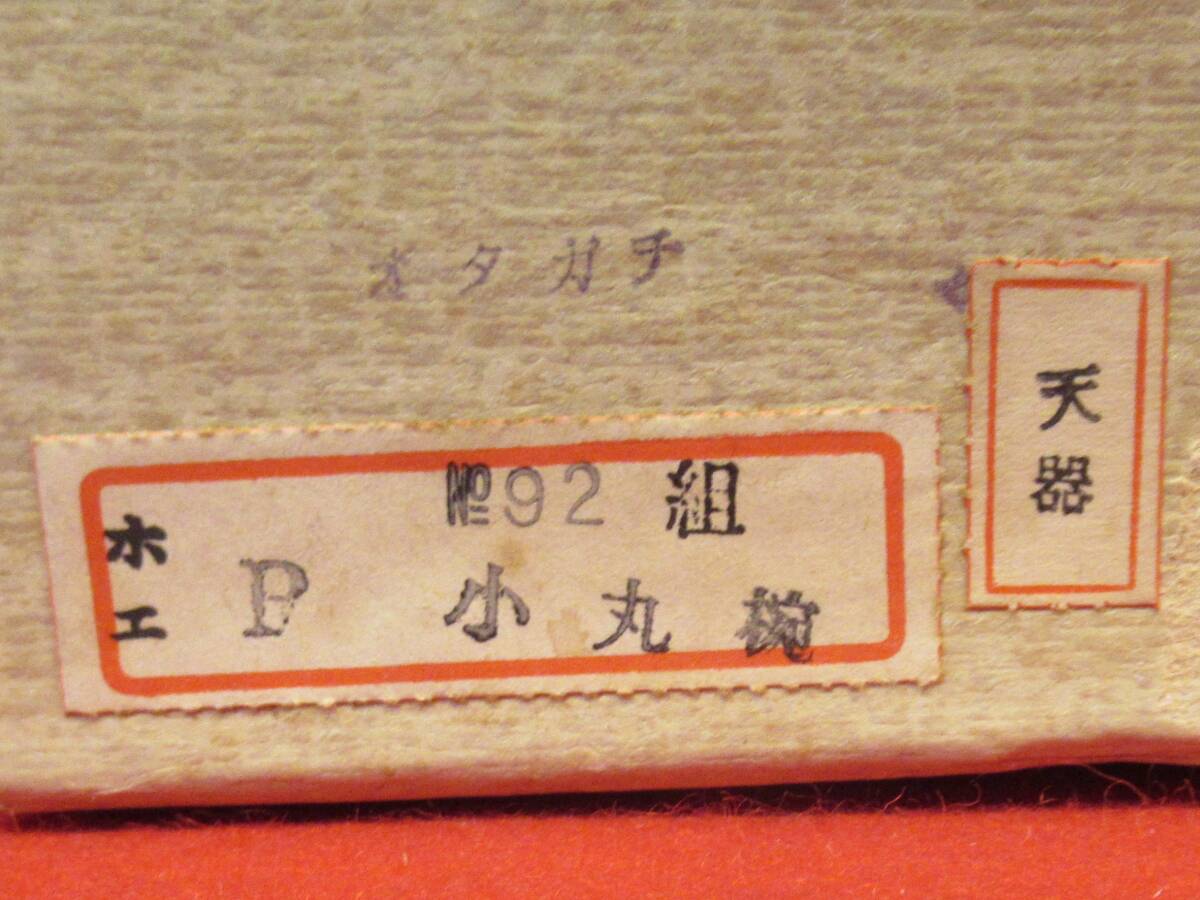 オタガチ
№92 組
ホエ P 小丸椀
天器